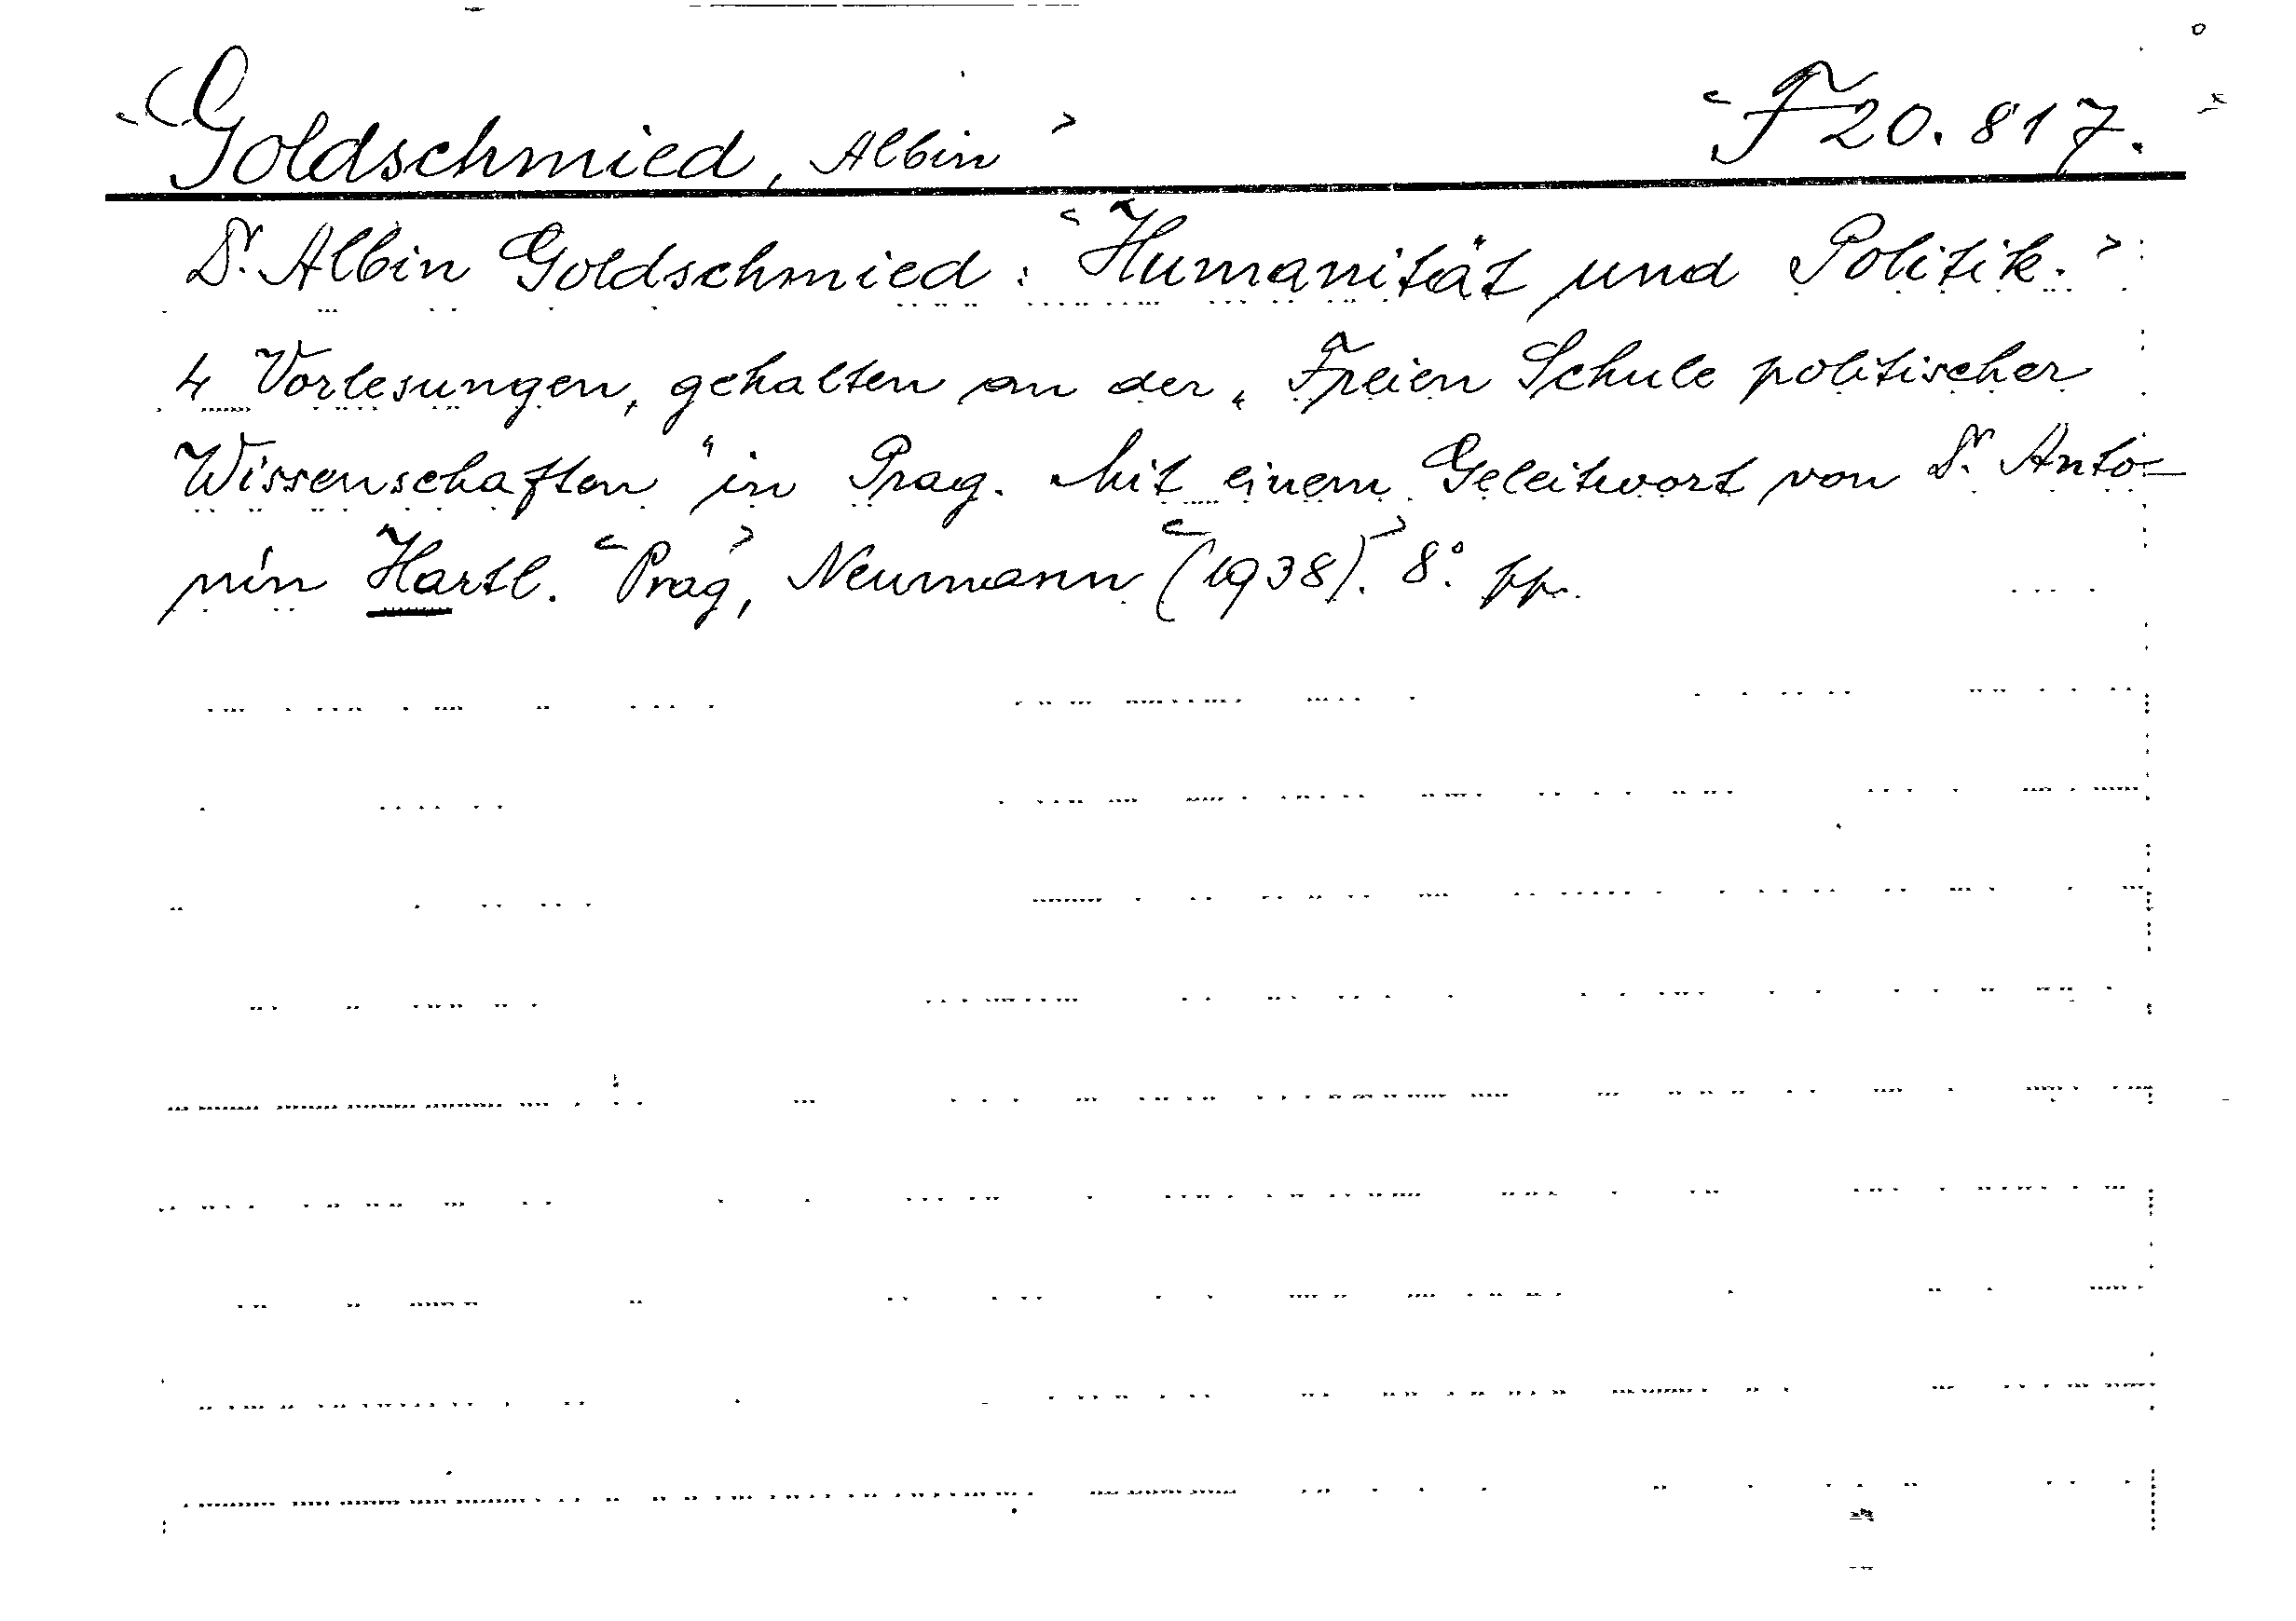 <Goldschmied, Albin> <F 20.817.>
Dr. Albin Goldschmied: <Humanität und Politik.>
4 Vorlesungen, gehalten an der „Freien Schule politischer
Wissenschaften“ in Prag. Mit einem Geleitwort von Dr. Anto-
nín Hartl. <Prag>, Neumann <(1938).> 8°. pp.